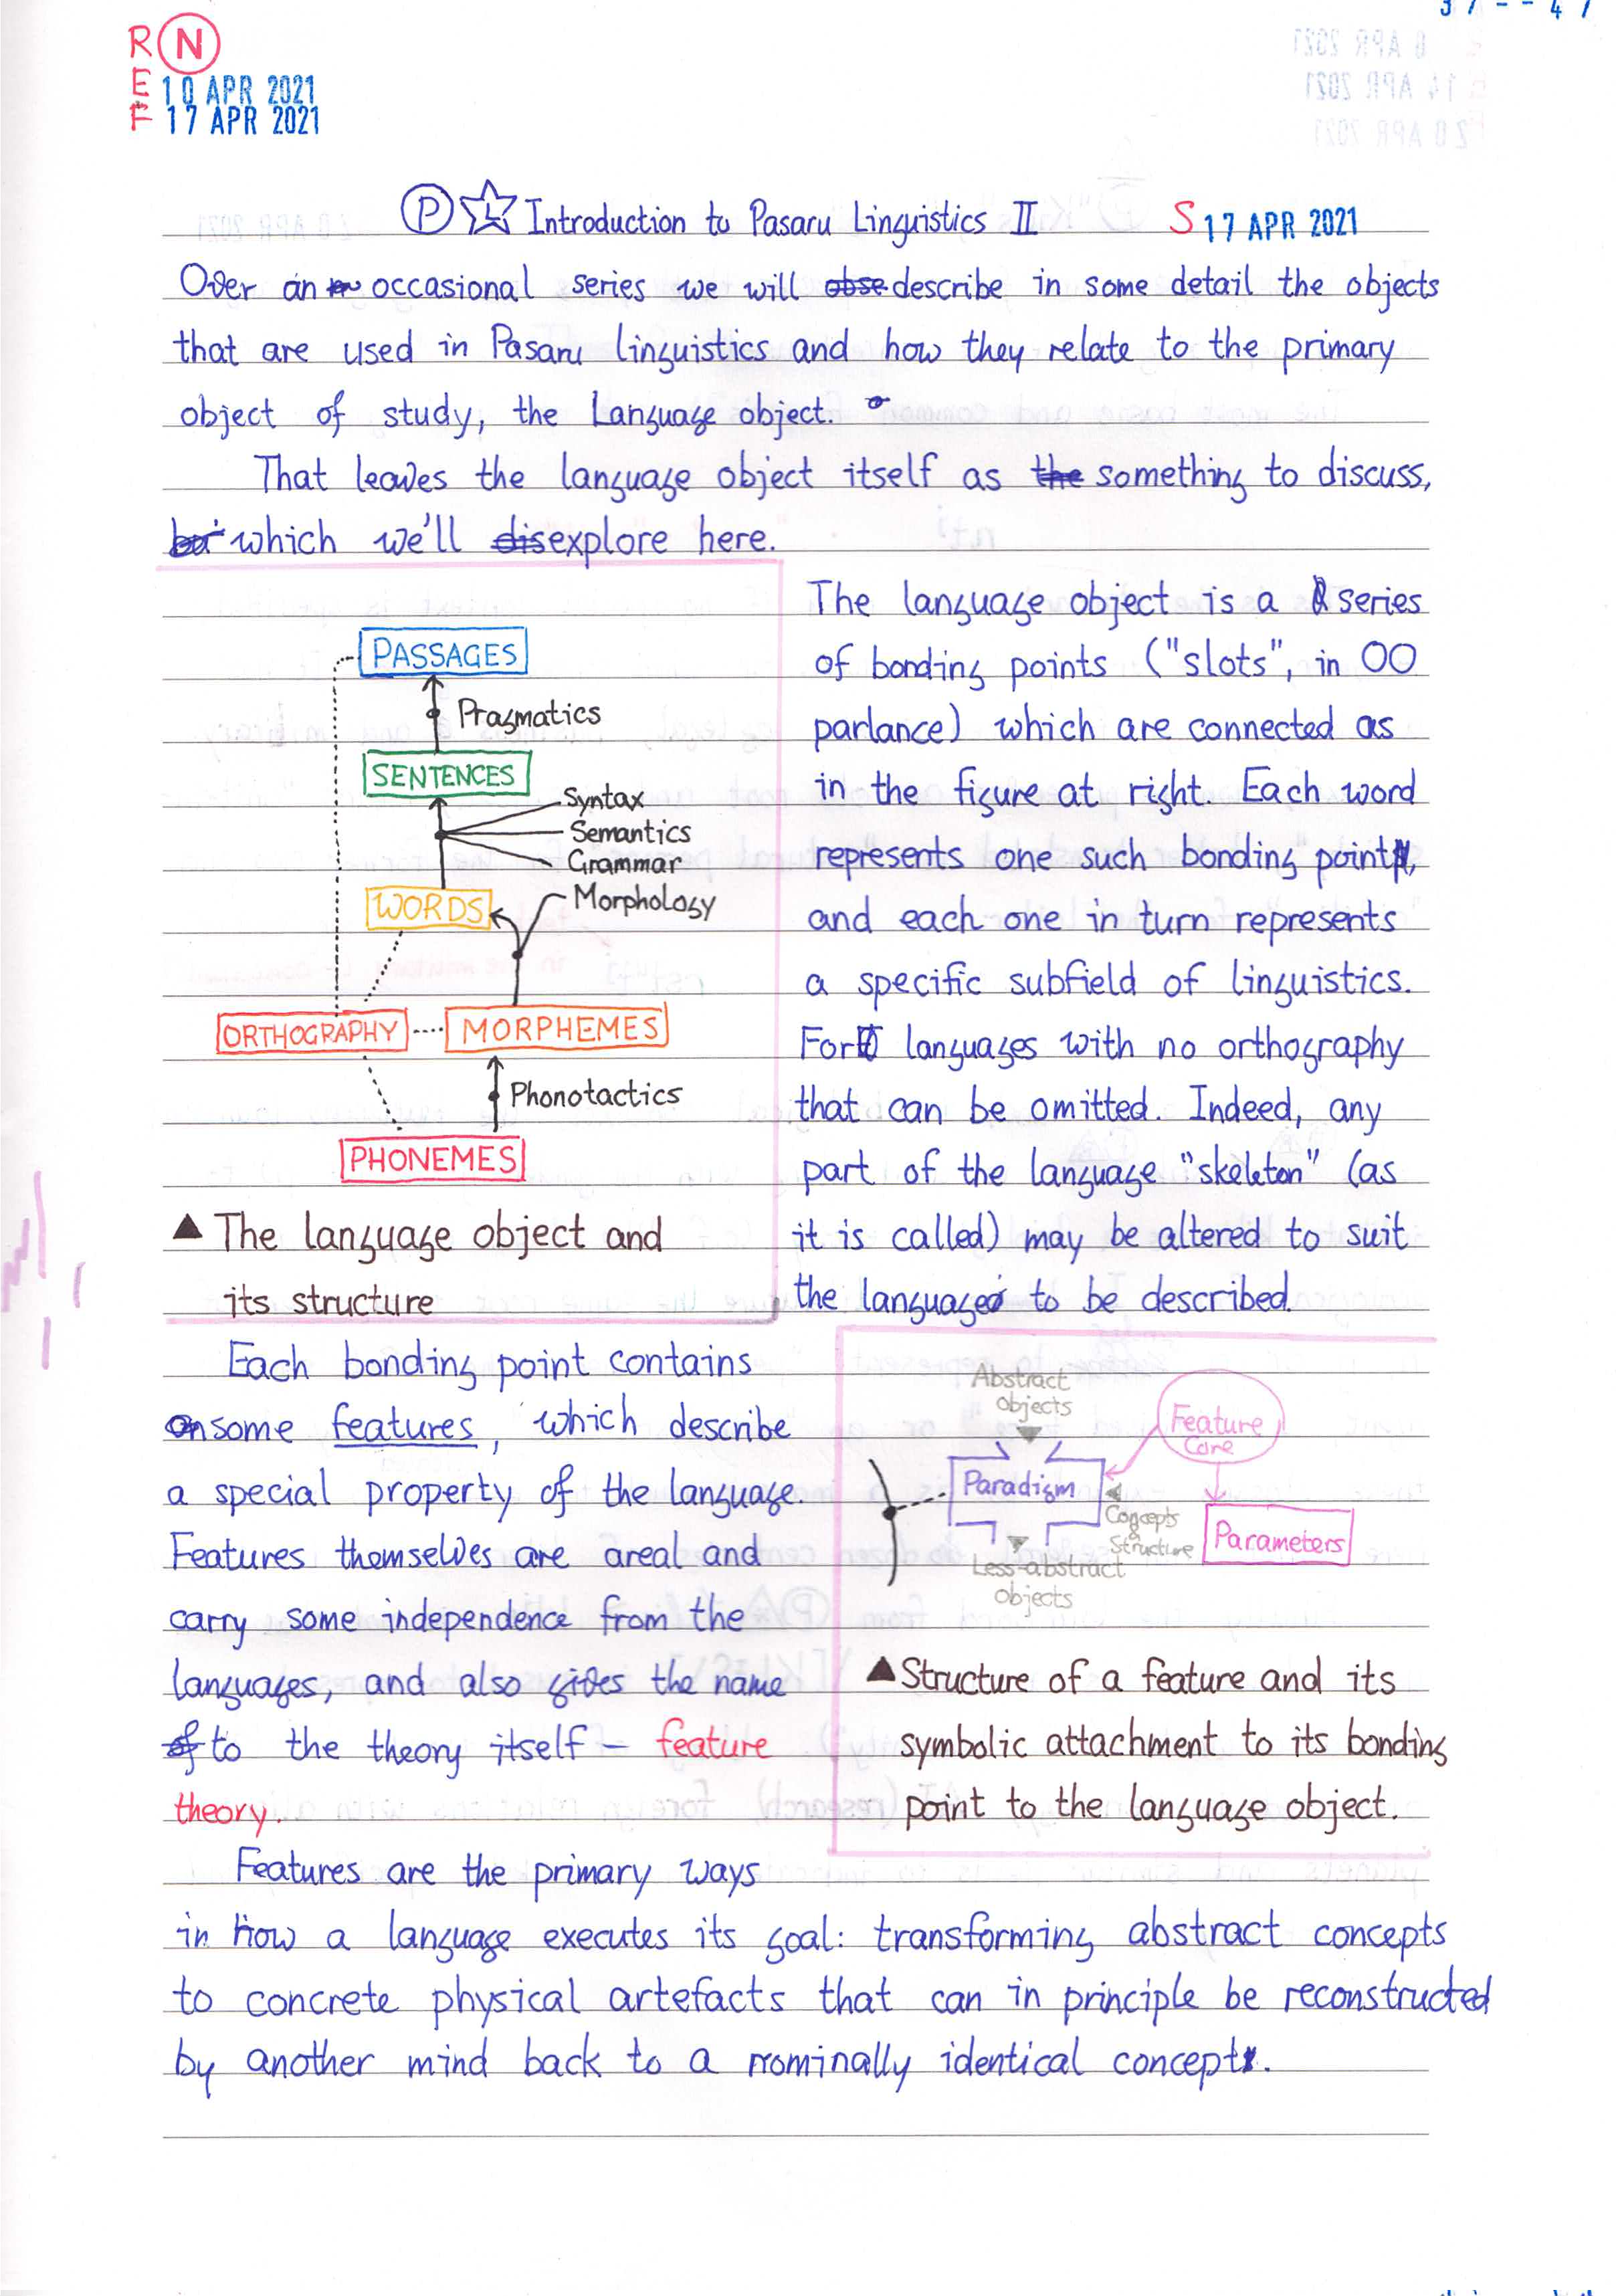 R N
E 10 APR 2021
F 17 APR 2021
P L Introduction to Pasaru Linguistics II S 17 APR 2021
Over an occasional series we will obse describe in some detail the objects
that are used in Pasaru linguistics and how they relate to the primary
object of study, the Language object.
That leaves the language object itself as the something to discuss,
which we'll dis explore here.
PASSAGES
Pragmatics
SENTENCES
Syntax
Semantics
Grammar
WORDS
Morphology
ORTHOGRAPHY
MORPHEMES
Phonotactics
PHONEMES
▲ The language object and
its structure
The language object is a series
of bonding points ("slots", in OO
parlance) which are connected as
in the figure at right. Each word
represents one such bonding point,
and each one in turn represents
a specific subfield of linguistics.
For languages with no orthography
that can be omitted. Indeed, any
part of the language "skeleton" (as
it is called) may be altered to suit
the language to be described.
Each bonding point contains
some features, which describe
a special property of the language.
Features themselves are areal and
carry some independence from the
languages, and also gives the name
of to the theory itself – feature
theory.
Abstract
objects
Feature
Core
Paradigm
Concepts
&
Structure
Parameters
Less-abstract
objects
▲ Structure of a feature and its
symbolic attachment to its bonding
point to the language object.
Features are the primary ways
in how a language executes its goal: transforming abstract concepts
to concrete physical artefacts that can in principle be reconstructed
by another mind back to a nominally identical concept.